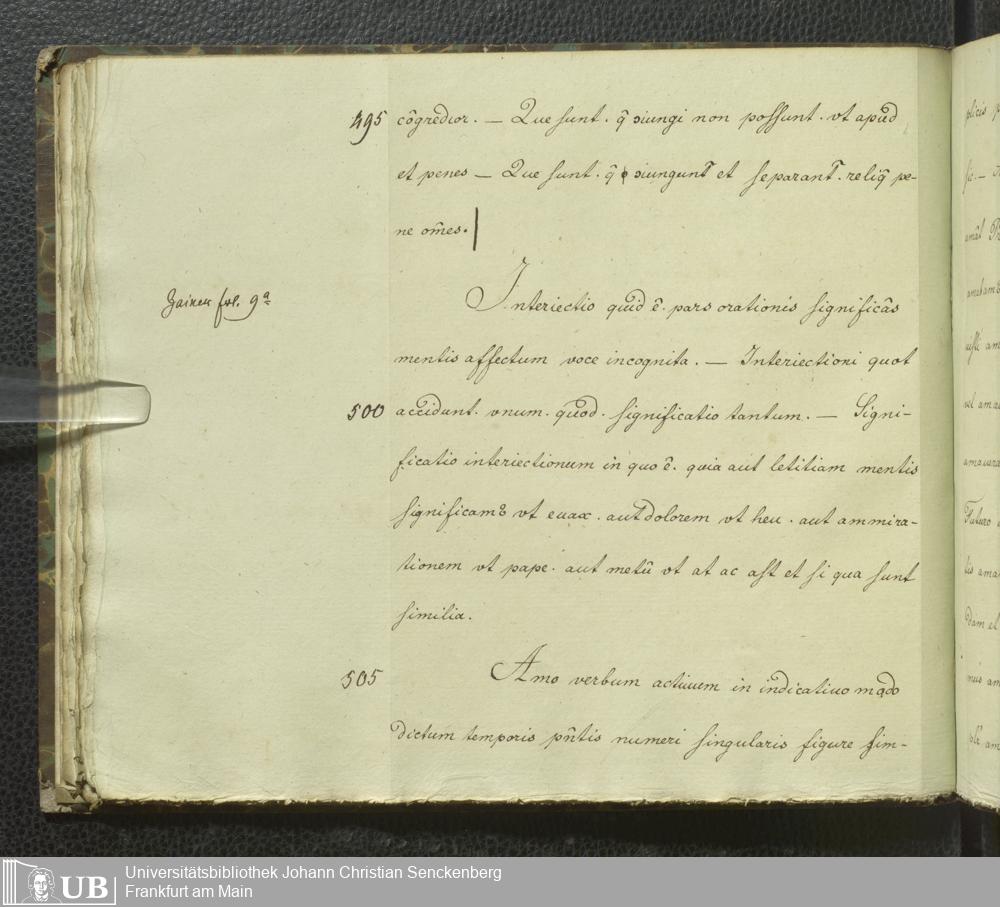 495 cõgredior. — Que sunt. q̃ ɔiungi non possunt. vt apud
et penes — Que sunt. q̃ ɔiungunt̃ et separant̃. reliq̃ pe-
ne om̃es.
Zainer fol. 9ª
Interiectio quid ẽ. pars orationis significãs
mentis affectum voce incognita. — Interiectioni quot
500 accidunt. vnum. quod. significatio tantum. — Signi-
ficatio interiectionum in quo ẽ. quia aut letitiam mentis
significamꝰ vt euax. aut dolorem vt heu. aut ammira-
tionem vt pape. aut metũ vt at ac ast et si qua sunt
similia.
505 Amo verbum actiuum in indicatiuo modo
dictum temporis pñtis numeri singularis figure sim-
Universitätsbibliothek Johann Christian Senckenberg
Frankfurt am Main
UB